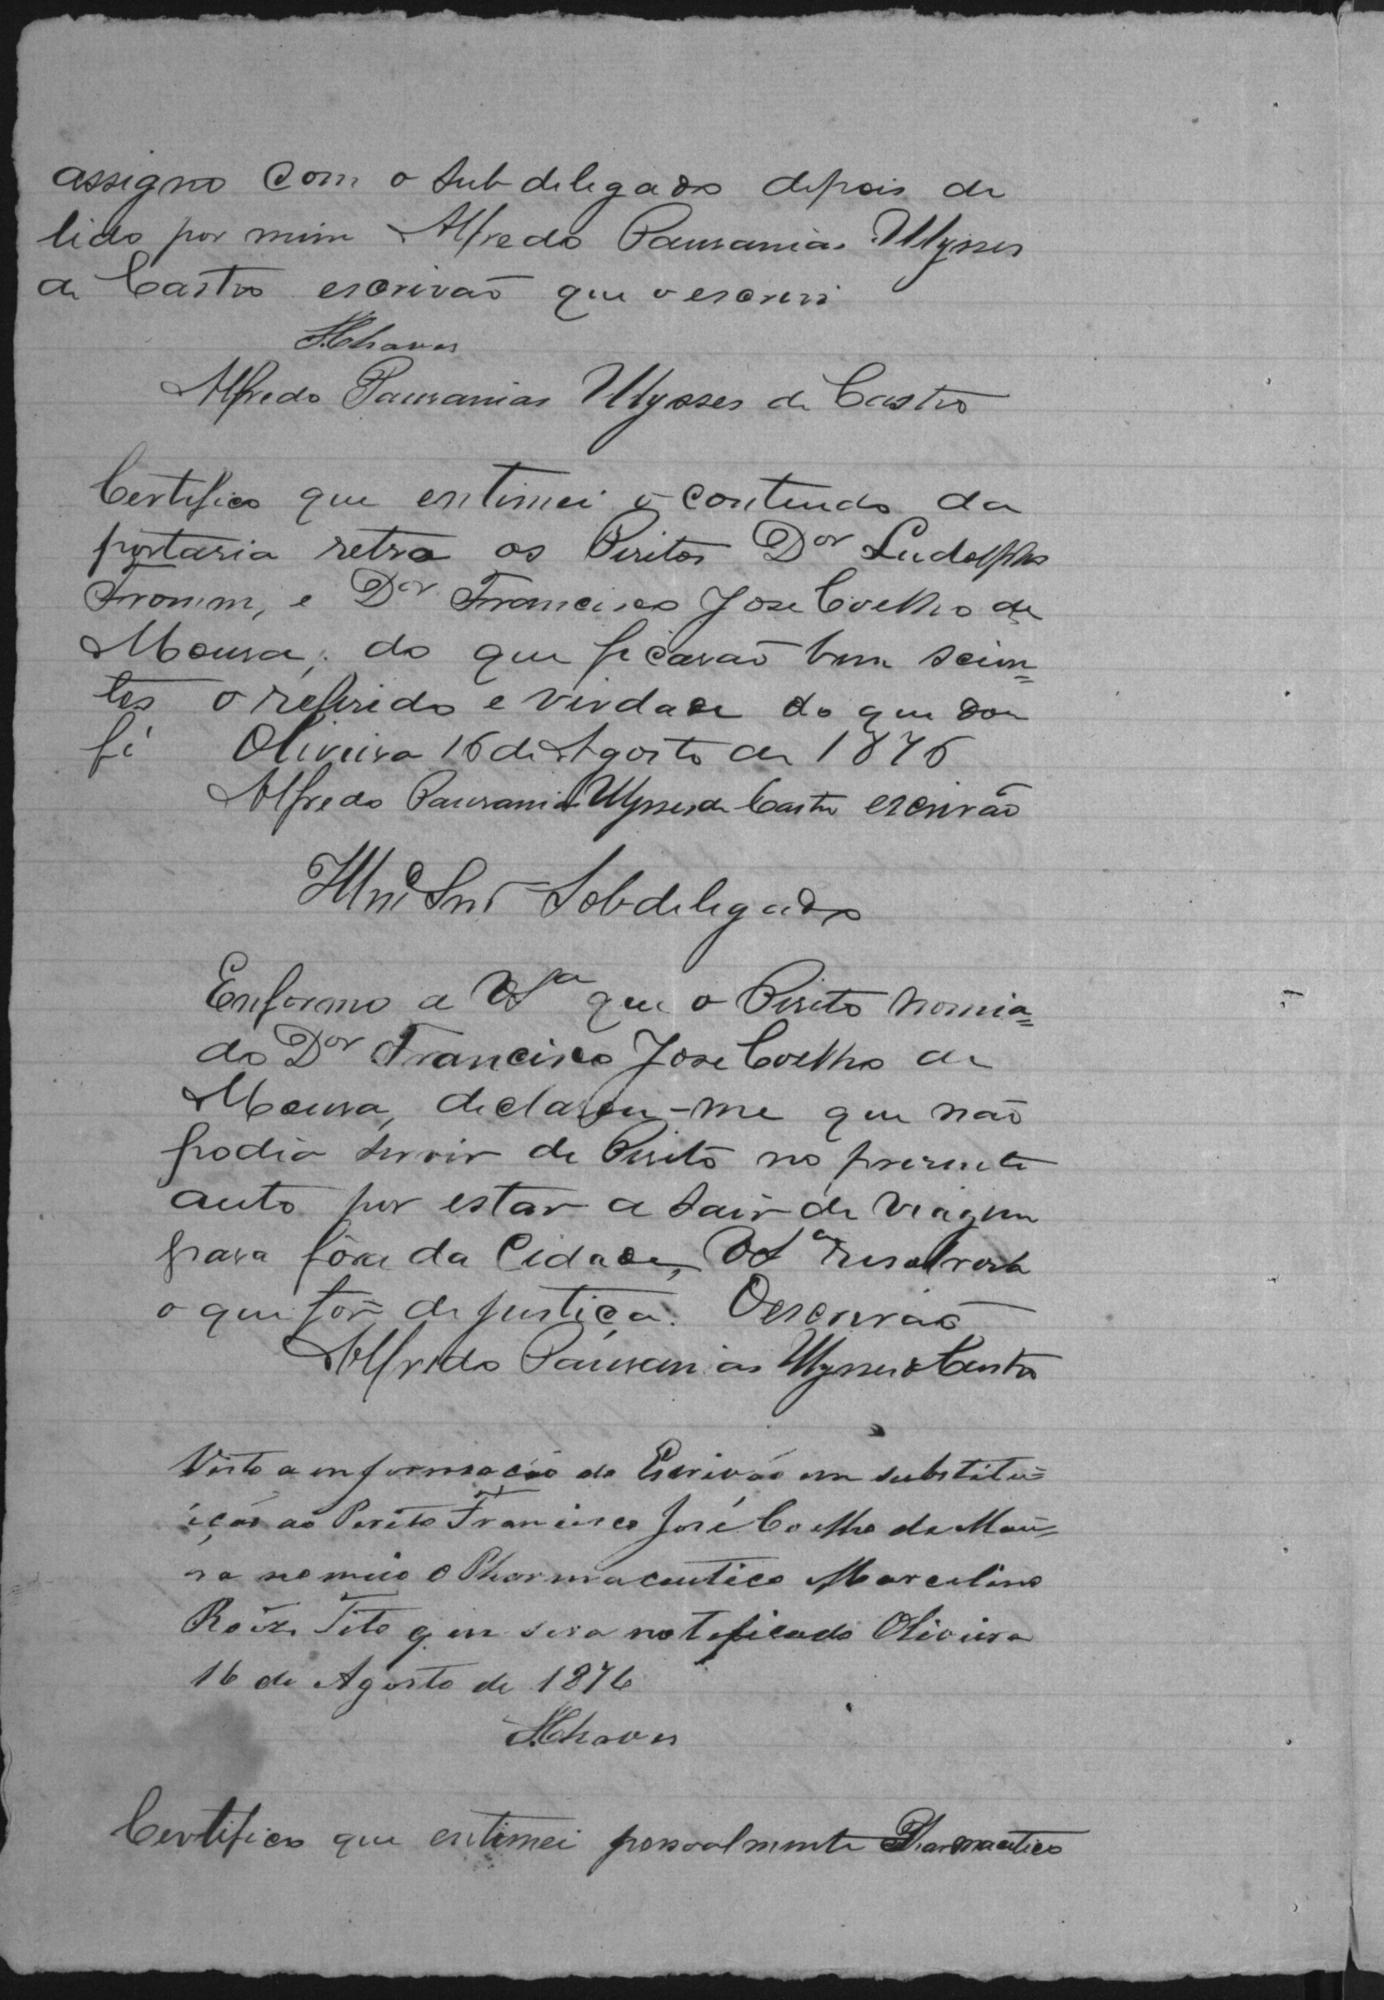 assigno com o Subdelegado depois de
lido por mim Alfredo Pausanias Ulysses
de Castro escrivaõ que o escrevi
Chaves
Alfredo Pausanias Ulysses de Castro
Certifico que entimei o contendo da
portaria retro os Peritos Dor Ludolpho
Fromm, e Dor Francisco Jose Coelho de
Moura, do que ficaraõ bem scien=
tes o referido e verdade do que dou
fé Oliveira 16 de Agosto de 1876
Alfredo Pausanias Ulysses de Castro escrivão
Illmo Snr Sobdelegado
Enformo a VSa que o Perito nomia=
do Dor Francisco Jose Coelho de
Moura, declarou-me que não
podia servir de Perito no presente
auto por estar a sair de viagem
para fóra da Cidade, VSa resolverá
o que for de justiça. O escrivão
Alfredo Pausanias Ulysses de Castro
Visto a informação do Escrivão em substitu=
ição ao Perito Francisco José Coelho de Mou=
ra nomeio o Pharmaceutico Marcelino
Roiz Tito que sera notificado Oliveira
16 de Agosto de 1876
Chaves
Certifico que entimei pessoalmente Farmaceutico